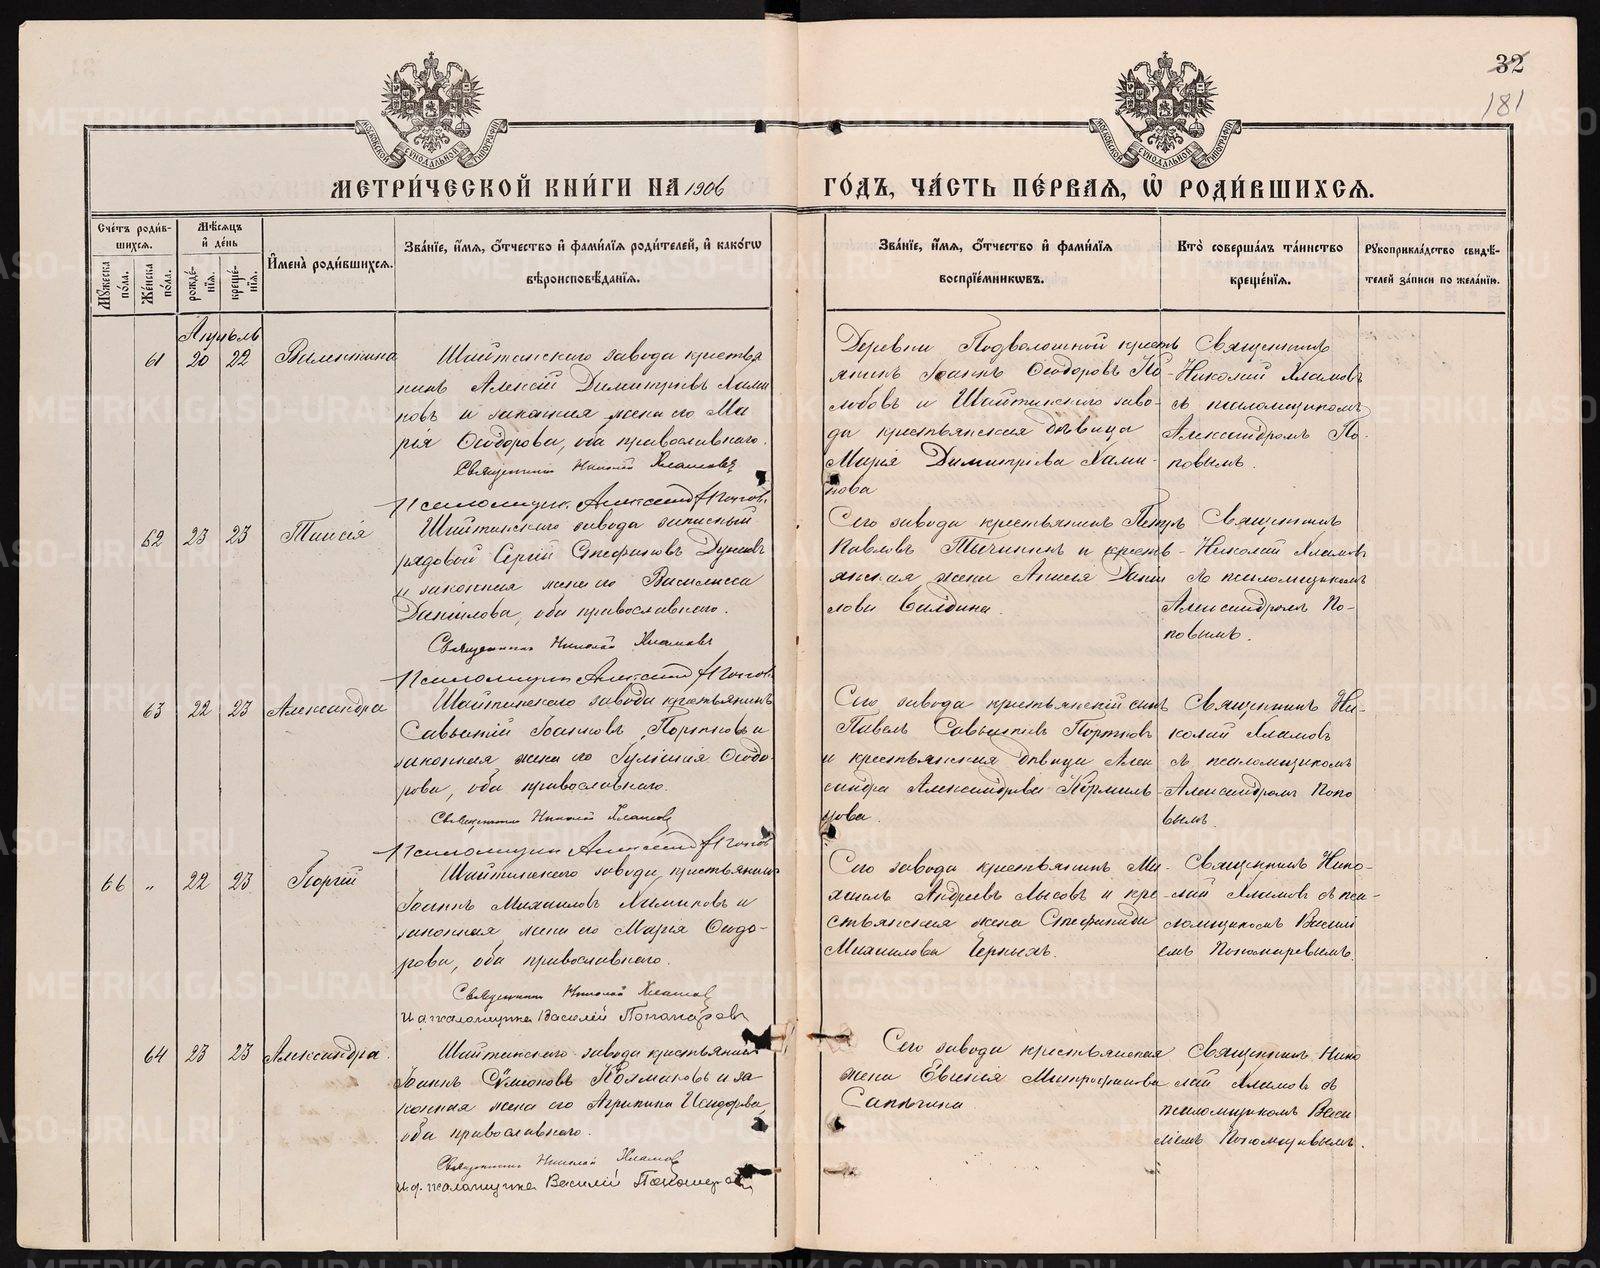 32
181
МЕТРИ́ЧЕСКОЙ КНИ́ГИ НА 1906 ГО́ДЪ, ЧА́СТЬ ПЕ́РВАЯ, Ѡ҆ РОДИ́ВШИХСЯ.
Сче́тъ роди́вшихся.
Мѣ́сяцъ и҆ де́нь
И҆мена̀ роди́вшихся.
Зва́нїе, и҆́мя, ѻ҆́тчество и҆ фами́лїя роди́телей, и҆ како́гѡ вѣроисповѣ́данїя.
Зва́нїе, и҆́мя, ѻ҆́тчество и҆ фами́лїя воспрїе́мникѡвъ.
Кто̀ соверша́лъ та́инство креще́нїя.
Рꙋкоприкла́дство свидѣ́телей за́писи по жела́нїю.
Мꙋ́жеска по́ла.
Же́нска по́ла.
рожде́нїя.
креще́нїя.
Апрѣль
61 20 22 Валентина
Шайтанскаго завода крестья
нинъ Алексій Димитріевъ Хами
новъ и законная жена его Ма
рія Ѳеодорова, оба православнаго.
Священникъ Николай Хламовъ
Псаломщикъ Александръ Поповъ
Деревни Подволошной кресть
янинъ Іоаннъ Ѳеодоровъ
и Шайтанскаго заво-
да крестьянская дѣвица
Марія Димитріева Хами-
нова
Священникъ
Николай Хламовъ
съ псаломщикомъ
Александромъ По-
повымъ.
62 23 23 Таисія
Шайтанскаго завода запасный
рядовой Сергій Стефановъ
и законная жена его Василисса
Даніилова, оба православнаго.
Священникъ Николай Хламовъ
Псаломщикъ Александръ Поповъ
Сего завода крестьянинъ Петръ
Павловъ и кресть-
янская жена Анисья Дани
лова
Священникъ
Николай Хламовъ
съ псаломщикомъ
Александромъ По-
повымъ.
63 22 23 Александра
Шайтанскаго завода крестьянинъ
Савватій Іоанновъ Портновъ и
законная жена его Ѳеодо-
рова, оба православнаго.
Священникъ Николай Хламовъ
Псаломщикъ Александръ Поповъ
Сего завода крестьянскій сынъ
Павелъ Савватіевъ Портновъ
и крестьянская дѣвица Алек
сандра Александрова Кормиль-
цова.
Священникъ Ни-
колай Хламовъ
съ псаломщикомъ
Александромъ Попо
вымъ.
66 " 22 23 Георгій
Шайтанскаго завода крестьянинъ
Іоаннъ Михаиловъ и
законная жена его Марія Ѳеодо-
рова, оба православнаго.
Священникъ Николай Хламовъ
И.д. псаломщика Василій Пономаревъ
Сего завода крестьянинъ Ми-
хаилъ Андреевъ Лысовъ и кре-
стьянская жена Стефанида
Михаилова Черныхъ.
Священникъ Нико-
лай Хламовъ съ пса-
ломщикомъ Васили
емъ Пономаревымъ.
64 23 23 Александра.
Шайтанскаго завода крестьянинъ
Іоаннъ Сѵмеоновъ и за
конная жена его Агрипина Исидорова,
оба православнаго.
Священникъ Николай Хламовъ
И.д. псаломщика Василій Пономаревъ
Сего завода крестьянская
жена Евгенія Митрофанова
Сапегина
Священникъ Нико
лай Хламовъ съ
псаломщикомъ Васи
ліемъ Пономаревымъ.
METRIKI.GASO-URAL.RU